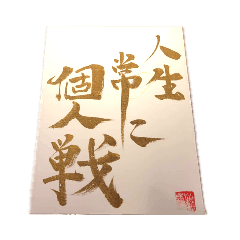 人生
常に
個人戦